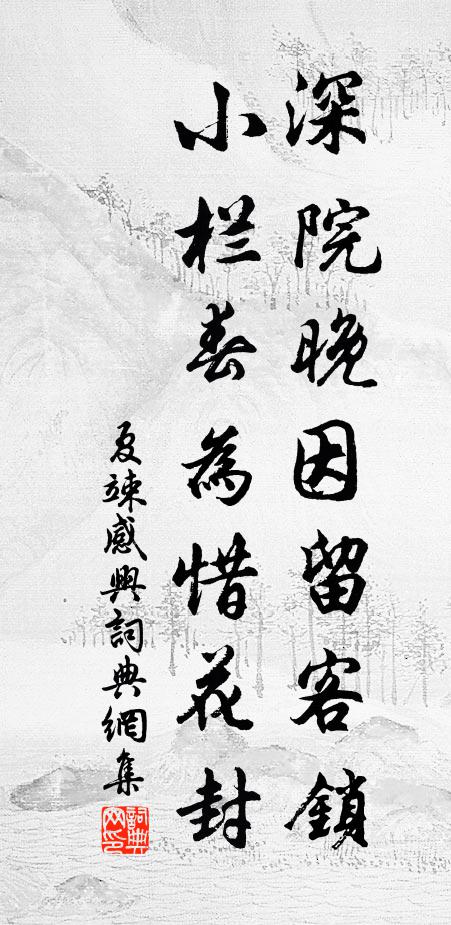 深院晚因留客鎖
小栏春為惜花封
夏竦感興詞典網集
詞典網印